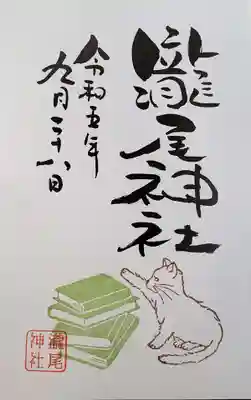 瀧尾神社
令和五年
九月二十八日
瀧尾
神社